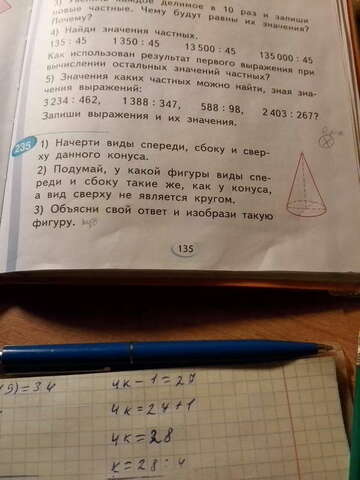 3) Увеличь каждое делимое в 10 раз и запиши
новые частные. Чему будут равны их значения?
Почему?
4) Найди значения частных.
135 : 45 1 350 : 45 13 500 : 45 135 000 : 45
Как использован результат первого выражения при
вычислении остальных значений частных?
5) Значения каких частных можно найти, зная зна-
чения выражений:
3 234 : 462, 1 388 : 347, 588 : 98, 2 403 : 267?
Запиши выражения и их значения.
235
1) Начерти виды спереди, сбоку и свер-
ху данного конуса.
2) Подумай, у какой фигуры виды спе-
реди и сбоку такие же, как у конуса,
а вид сверху не является кругом.
3) Объясни свой ответ и изобрази такую
фигуру.
135
5)=34
4к-1=27
4к=27+1
4к=28
к=28:4